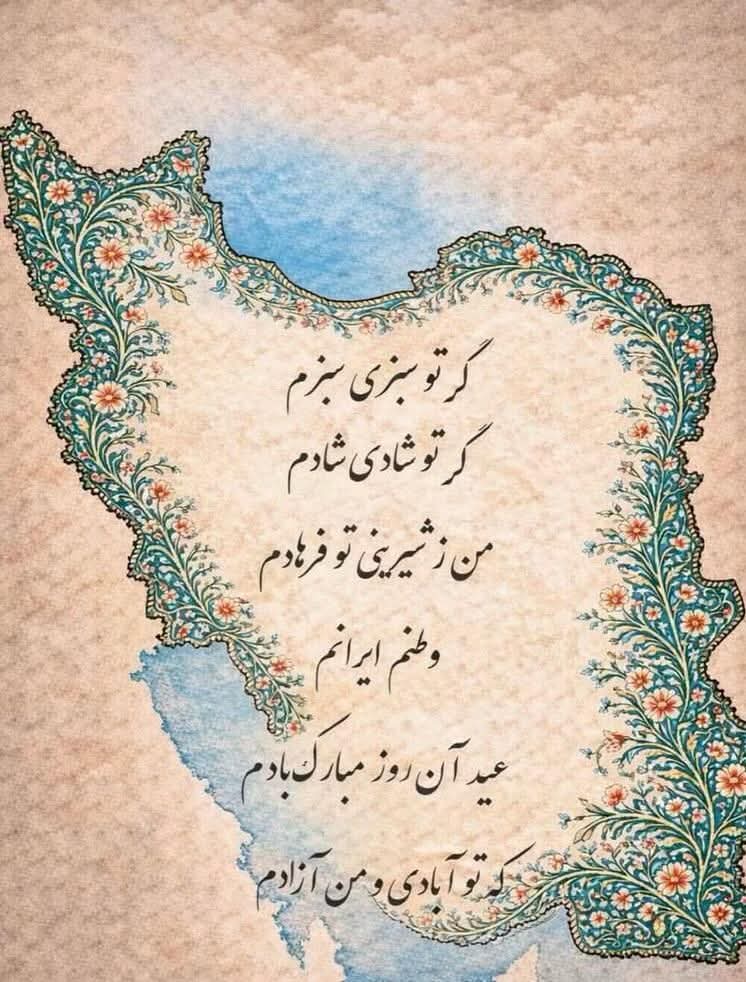 گر تو سبزی سبزم
گر تو شادی شادم
من ز شیرینی تو فرهادم
وطنم ایرانم
عید آن روز مبارک بادم
که تو آبادی و من آزادم